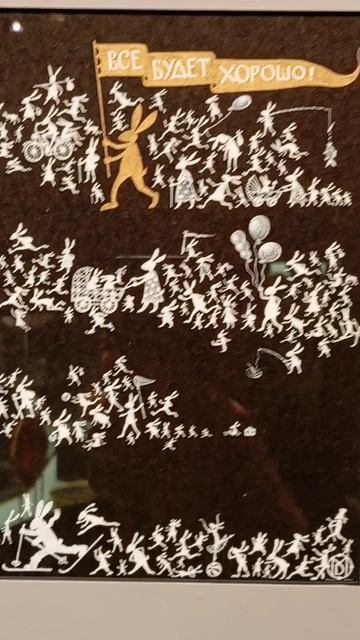 ВСЕ БУДЕТ ХОРОШО!